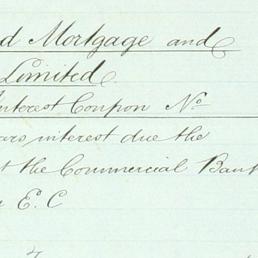 d Mortgage and
Limited
Interest Coupon No
ars interest due the
t the Commercial Bank
E. C